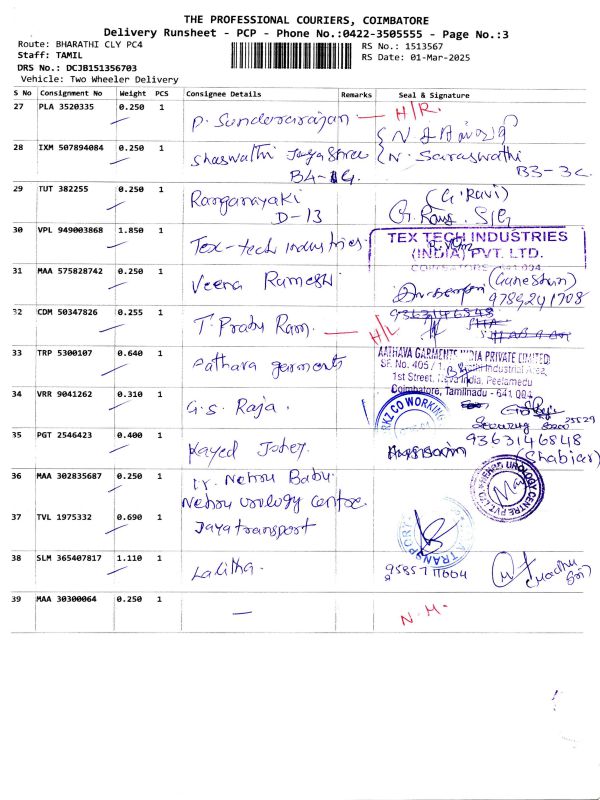 THE PROFESSIONAL COURIERS, COIMBATORE
Delivery Runsheet - PCP - Phone No.:0422-3505555 - Page No.:3
Route: BHARATHI CLY PC4
RS No.: 1513567
Staff: TAMIL
RS Date: 01-Mar-2025
DRS No.: DCJB151356703
Vehicle: Two Wheeler Delivery
S No Consignment No Weight PCS Consignee Details Remarks Seal & Signature
27 PLA 3520335 0.250 1
P. Sunderarajan — H/R.
28 IXM 507894084 0.250 1
Shaswathi Jayashree N. Saraswathi
B4-1G. B3-3C
29 TUT 382255 0.250 1
Ranganayaki (G.Ravi)
D-13
30 VPL 949003868 1.850 1
Tex-tech industries
TEX TECH INDUSTRIES
(INDIA) PVT. LTD.
COIMBATORE 641 004
31 MAA 575828742 0.250 1
Veera Ramesh (Ganeshan)
9789241708
32 CDM 50347826 0.255 1
9363146848
T. Prabu Ram. — H/L
33 TRP 5300107 0.640 1
Aathava garments
AATHAVA GARMENTS INDIA PRIVATE LIMITED
SF. No. 405 / 1, Industrial Area,
1st Street, India, Peelamedu
Coimbatore, Tamilnadu - 641 004
34 VRR 9041262 0.310 1
G.S. Raja.
RKZ CO WORKING
35 PGT 2546423 0.400 1
9363146848
(Shabjan)
36 MAA 302835687 0.250 1
Dr. Nehru Babu
Nehru urology centre.
NEHRU UROLOGY CENTRE PVT LTD
37 TVL 1975332 0.690 1
Jaya transport
38 SLM 365407817 1.110 1
Lalitha.
9585711664
39 MAA 30300064 0.250 1
— N.M.